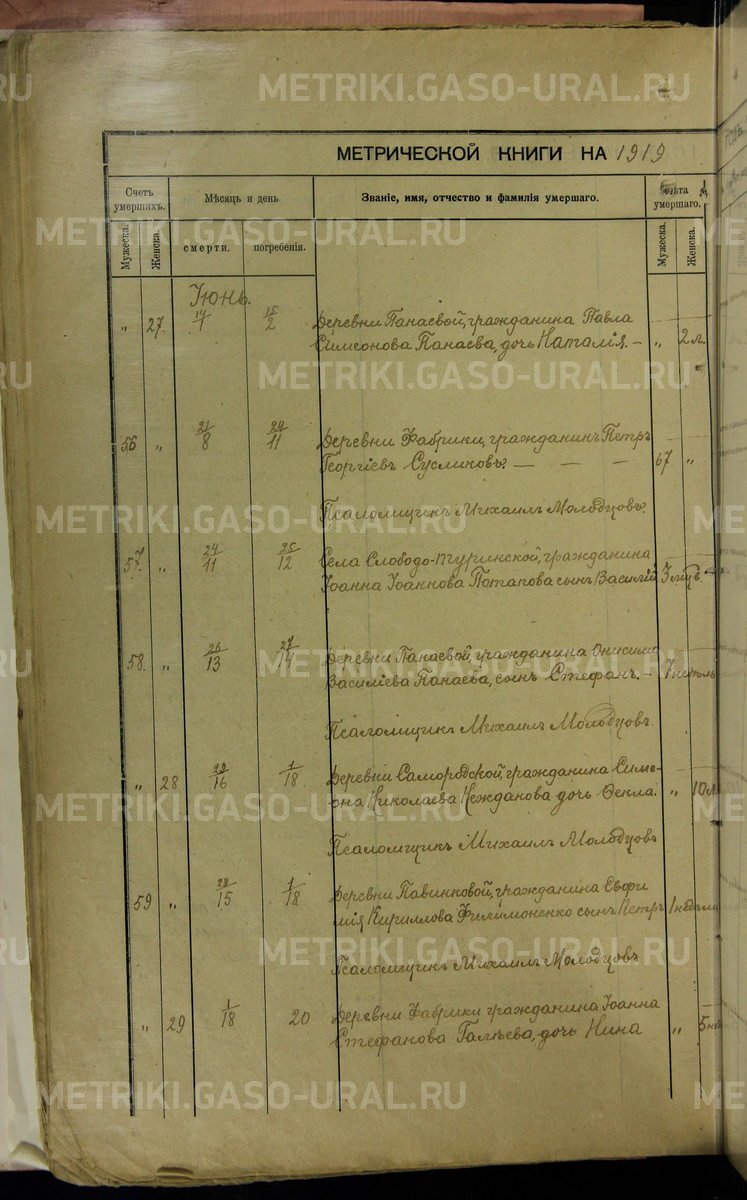 МЕТРИЧЕСКОЙ КНИГИ НА 1919
Счетъ умершихъ.
Мѣсяцъ и день
Званіе, имя, отчество и фамилія умершаго.
Лѣта умершаго.
Мужеска.
Женска.
смерти.
погребенія.
Мужеска.
Женска.
Іюнь.
„ 27. 1 15/2 Деревни Панаевой, гражданина Павла
Симеонова Панаева, дочь Наталія. — „ 2 л.
56 „ 21/8 24/11 Деревни Фабрики, гражданинъ Петръ
Георгіевъ Сусликовъ. — — — 67 „
Псаломщикъ Михаилъ Молодцовъ.
57. „ 24/11 25/12 Села Слободо-Туринской, гражданина
Іоанна Іоаннова Потапова сынъ Василій
58. „ 26/13 27/14 Деревни Панаевой, гражданина Онисима
Василіева Панаева, сынъ Стефанъ. — 7
Псаломщикъ Михаилъ Молодцовъ.
„ 28 29/16 1/18. Деревни Самородской, гражданина Симе-
она Николаева Нежданова дочь Ѳекла. „
Псаломщикъ Михаилъ Молодцовъ
59 „ 28/15 1/18 Деревни Павинковой, гражданина Евфи
мія Кириллова Филимоненко сынъ Петръ 1 недѣли
Псаломщикъ Михаилъ Молодцовъ
„ 29 1/18 20 Деревни Фабрики гражданина Іоанна
Стефанова Галѣева, дочь Нина „ 5
METRIKI.GASO-URAL.RU